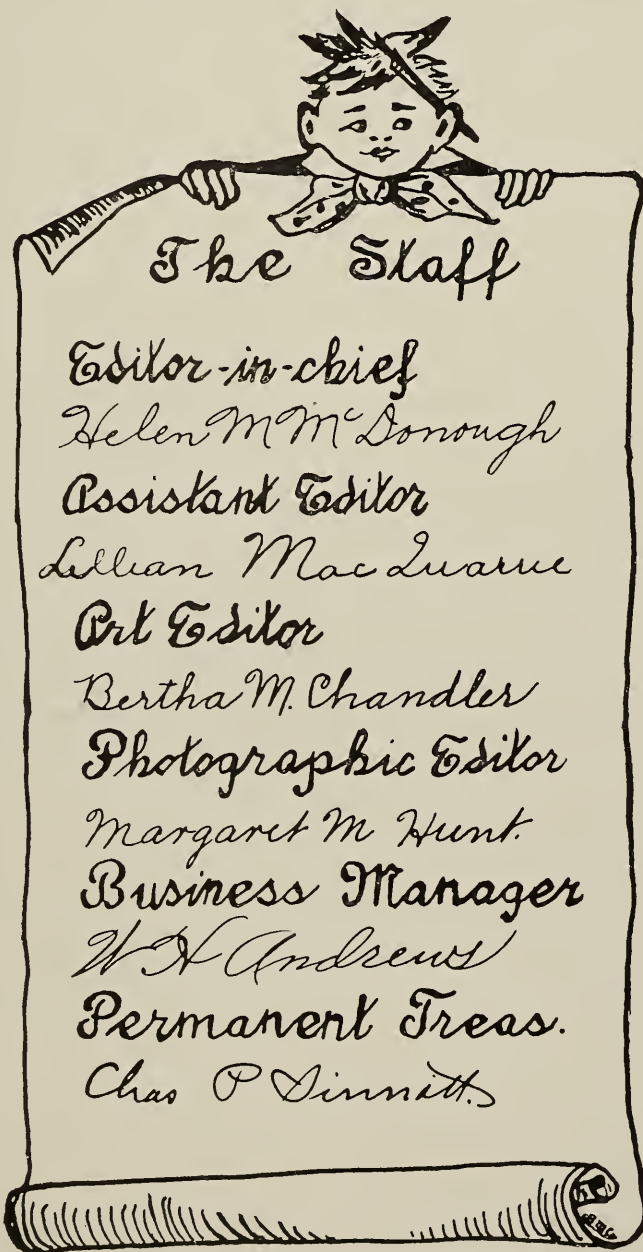 The Staff
Editor-in-chief
Helen M McDonough
Assistant Editor
Lillian MacQuarrie
Art Editor
Bertha M. Chandler
Photographic Editor
Margaret M Hunt.
Business Manager
W H Andrews
Permanent Treas.
Chas P Sinnott.
BMC